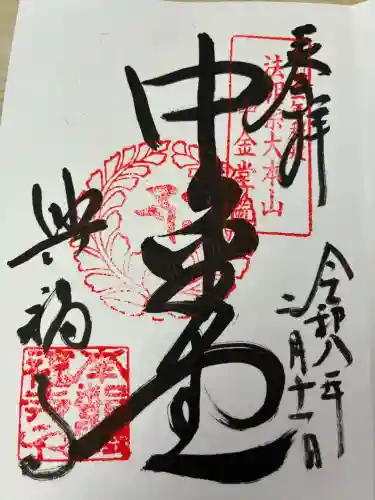 奉拝
法相宗大本山
中金堂
令和八年
二月十一日
興福寺